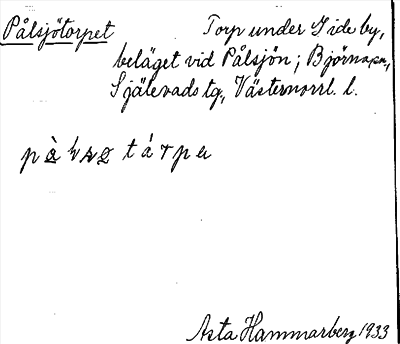 Pålsjötorpet Torp under Gideby,
beläget vid Pålsjön; Björna sn,
Själevads tg, Västernorrl. l.
Asta Hammarberg 1933